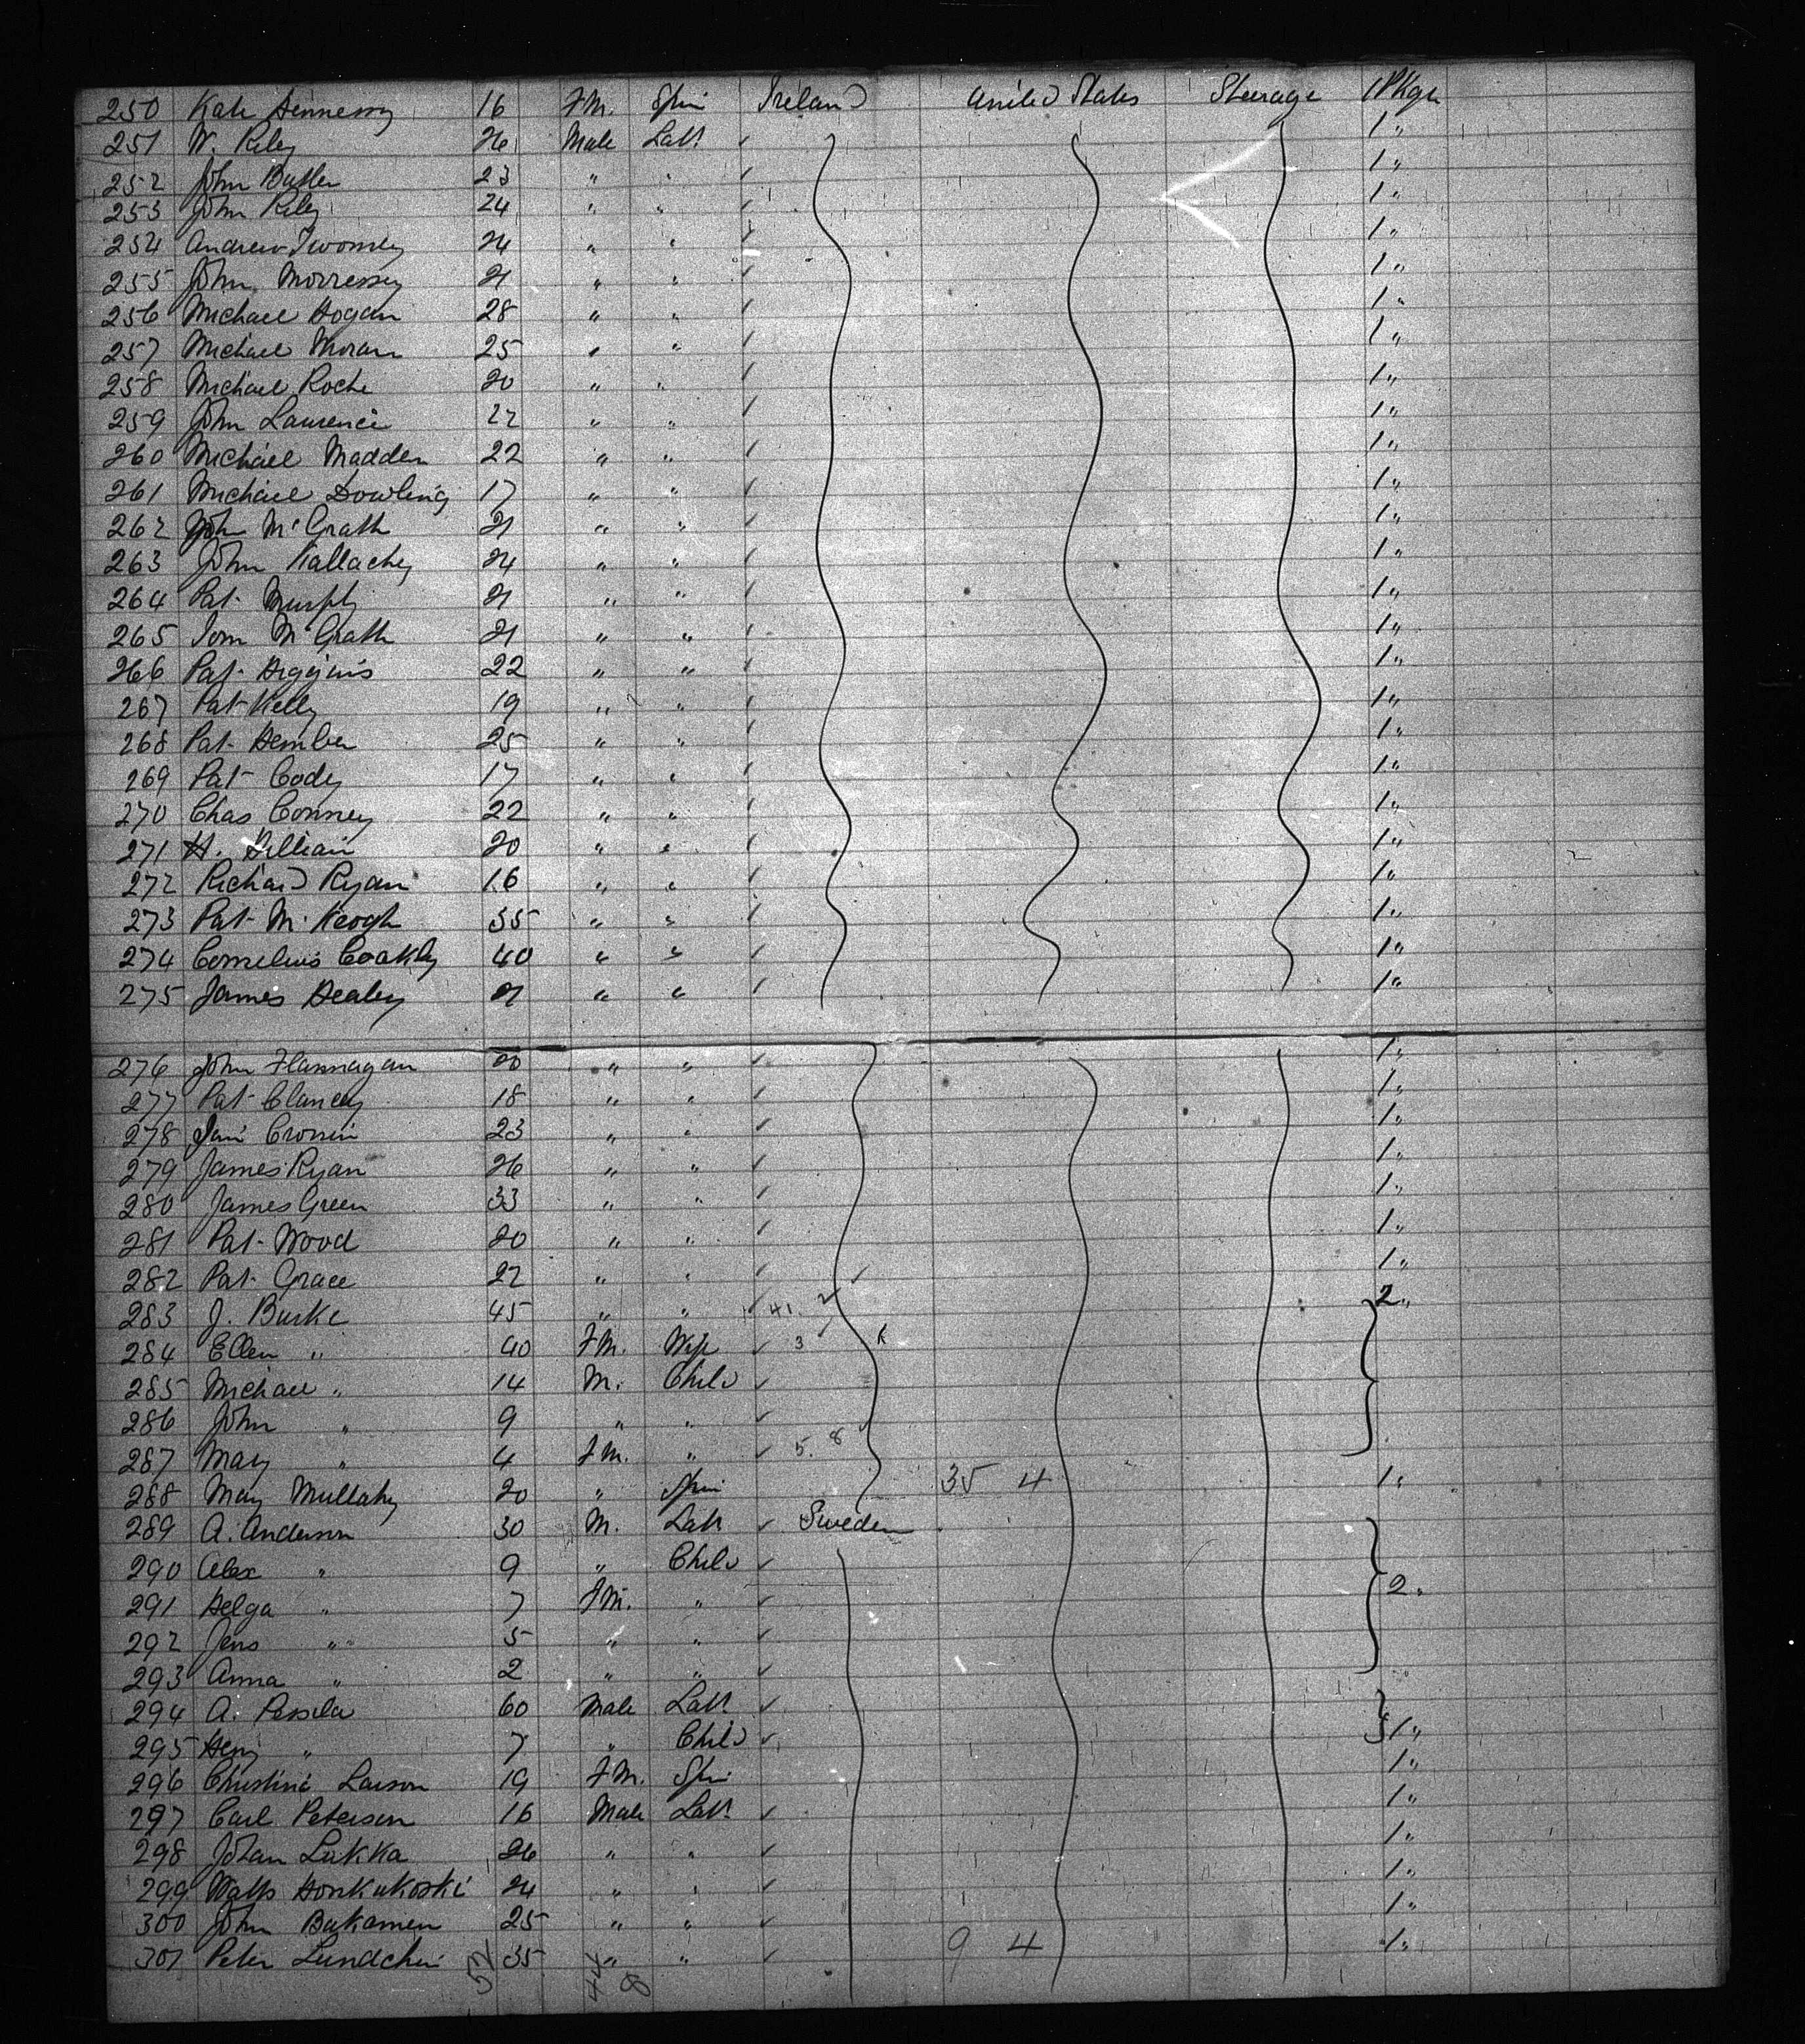 250 Kate Hennessy 16 FM. Spin Ireland United States Steerage 1 Pkge
251 W. Riley 26 Male Labr 1 "
252 John Butler 23 " " 1 "
253 John Riley 24 " " 1 "
254 Andrew Twomey 24 " " 1 "
255 John Morressey 21 " " 1 "
256 Michael Hogan 28 " " 1 "
257 Michael Moran 25 " " 1 "
258 Michael Roche 20 " " 1 "
259 John Laurence 22 " " 1 "
260 Michael Madden 22 " " 1 "
261 Michael Dowling 17 " " 1 "
262 John McGrath 21 " " 1 "
263 John Kallachy 24 " " 1 "
264 Pat Murphy 21 " " 1 "
265 Tom McGrath 21 " " 1 "
266 Pat Higgins 22 " " 1 "
267 Pat Kelly 19 " " 1 "
268 Pat Hember 25 " " 1 "
269 Pat Cody 17 " " 1 "
270 Chas Conney 22 " " 1 "
271 H. 20 " " 1 "
272 Richard Ryan 16 " " 1 "
273 Pat McKeogh 35 " " 1 "
274 Cornelius Coakly 40 " " 1 "
275 James Healey 21 " " 1 "
276 John Flannagan 20 " " 1 "
277 Pat Clancy 18 " " 1 "
278 Cronin 23 " " 1 "
279 James Ryan 26 " " 1 "
280 James Green 33 " " 1 "
281 Pat Wood 20 " " 1 "
282 Pat Grace 22 " " 1 "
283 J. Burke 45 " " 41. 2 2 "
284 Ellen " 40 FM. Wife 3
285 Michael " 14 M. Child
286 John " 9 " "
287 Mary " 4 FM. " 5. 8
288 May Mullahy 20 " Spin 35 4 1 "
289 A. Anderson 30 M. Labr Sweden
290 Alex " 9 " Child
291 Helga " 7 FM. " 2 "
292 Jens " 5 " "
293 Anna " 2 " "
294 A. Pessela 60 Male Labr
295 " 7 " Child 1 "
296 Christine Larson 19 FM. Spin 1 "
297 Carl Peterson 16 Male Labr 1 "
298 Johan Lukka 26 " " 1 "
299 Matts Honkakoski 24 " " 1 "
300 John Bukamen 25 " " 1 "
301 Peter 35 " " 9 4 1 "
52 44 8